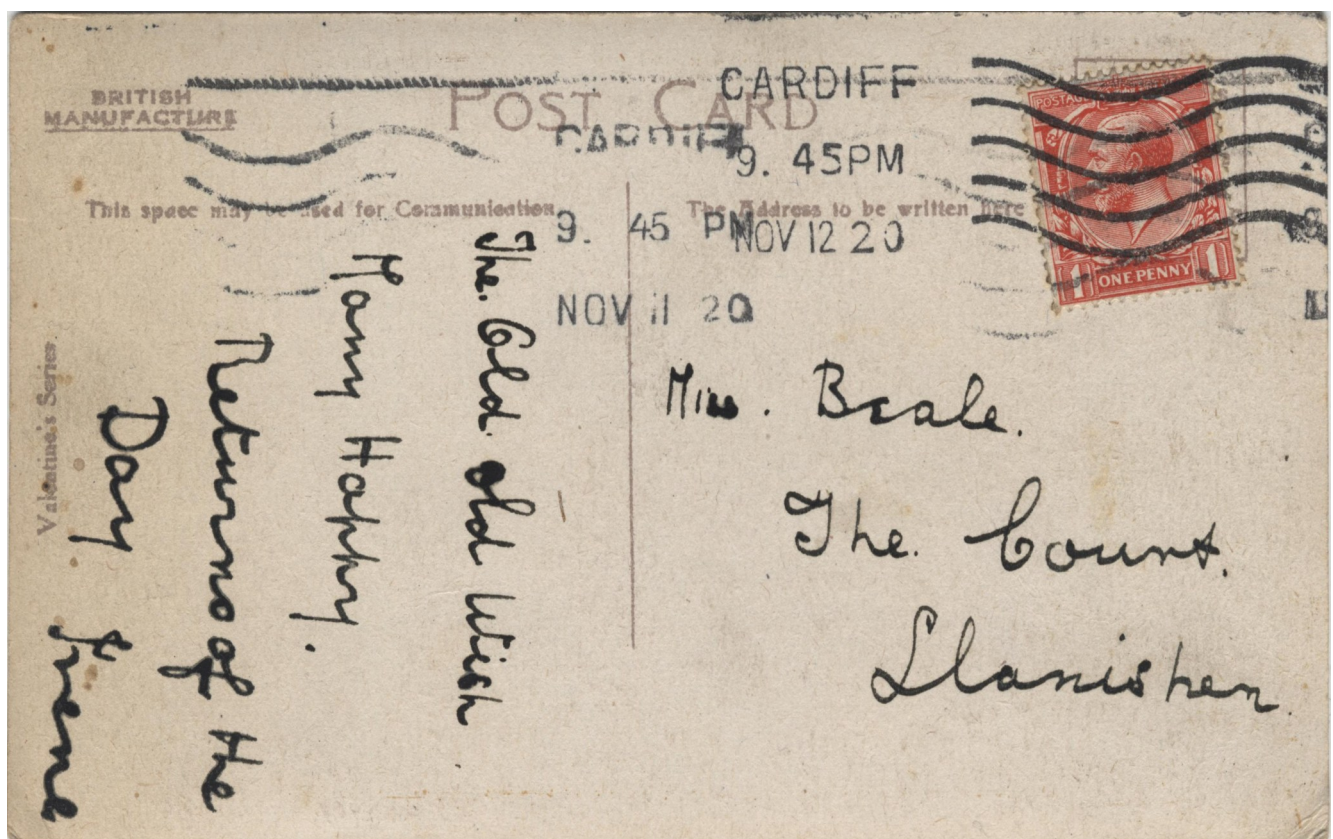 BRITISH
MANUFACTURE
POST CARD
CARDIFF
9. 45PM
NOV 12 20
CARDIFF
9. 45 PM
NOV 11 20
This space may be used for Communication
The Address to be written here
POSTAGE
1 ONE PENNY 1
Valentine's Series
The. Old old Wish
Many Happy.
Returns of the
Day Irene
Miss. Beale.
The. Court.
Llanishen